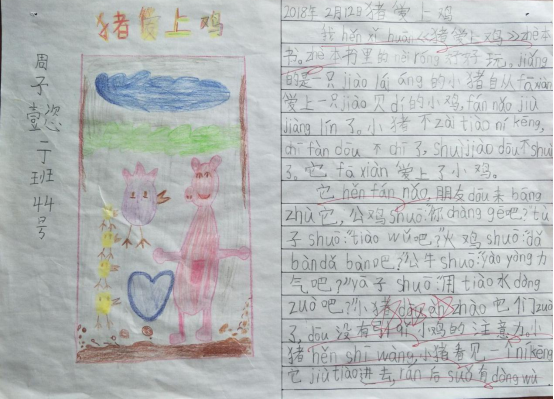 猪爱上鸡
周子壹
二丁班
44号
2018年2月12日猪爱上鸡
我hěn xǐ huān《猪爱上鸡》zhè本
书。zhè本书里的nèi róng 好玩。jiǎng
的是一只jiào 的小猪自从fā xiàn
爱上一只jiào 贝 的小鸡,fán nǎo jiù
jiàng lín了。小猪不zài tiào ní kēng,
chī fàn dōu 不chī了,shuì jiào dōu不shuì
了。它fā xiàn爱上了小鸡。
它hěn fán nǎo,朋友dōu来bāng
zhù它,公鸡shuō:"你chàng gē吧?"tù
子shuō:"tiào wǔ吧?"火鸡shuō:"dǎ
bàn dǎ bàn吧?"公牛shuō:"bǐ yòng力
气吧?"yā子shuō:"用tiào水dòng
zuò吧?"小猪 àn zhào它们zuò
了,dōu没有 小鸡的注意力。小
猪hěn shī wàng,小猪看见一个ní kēng
它jiù tiào进去,rán后suǒ有dòng wù